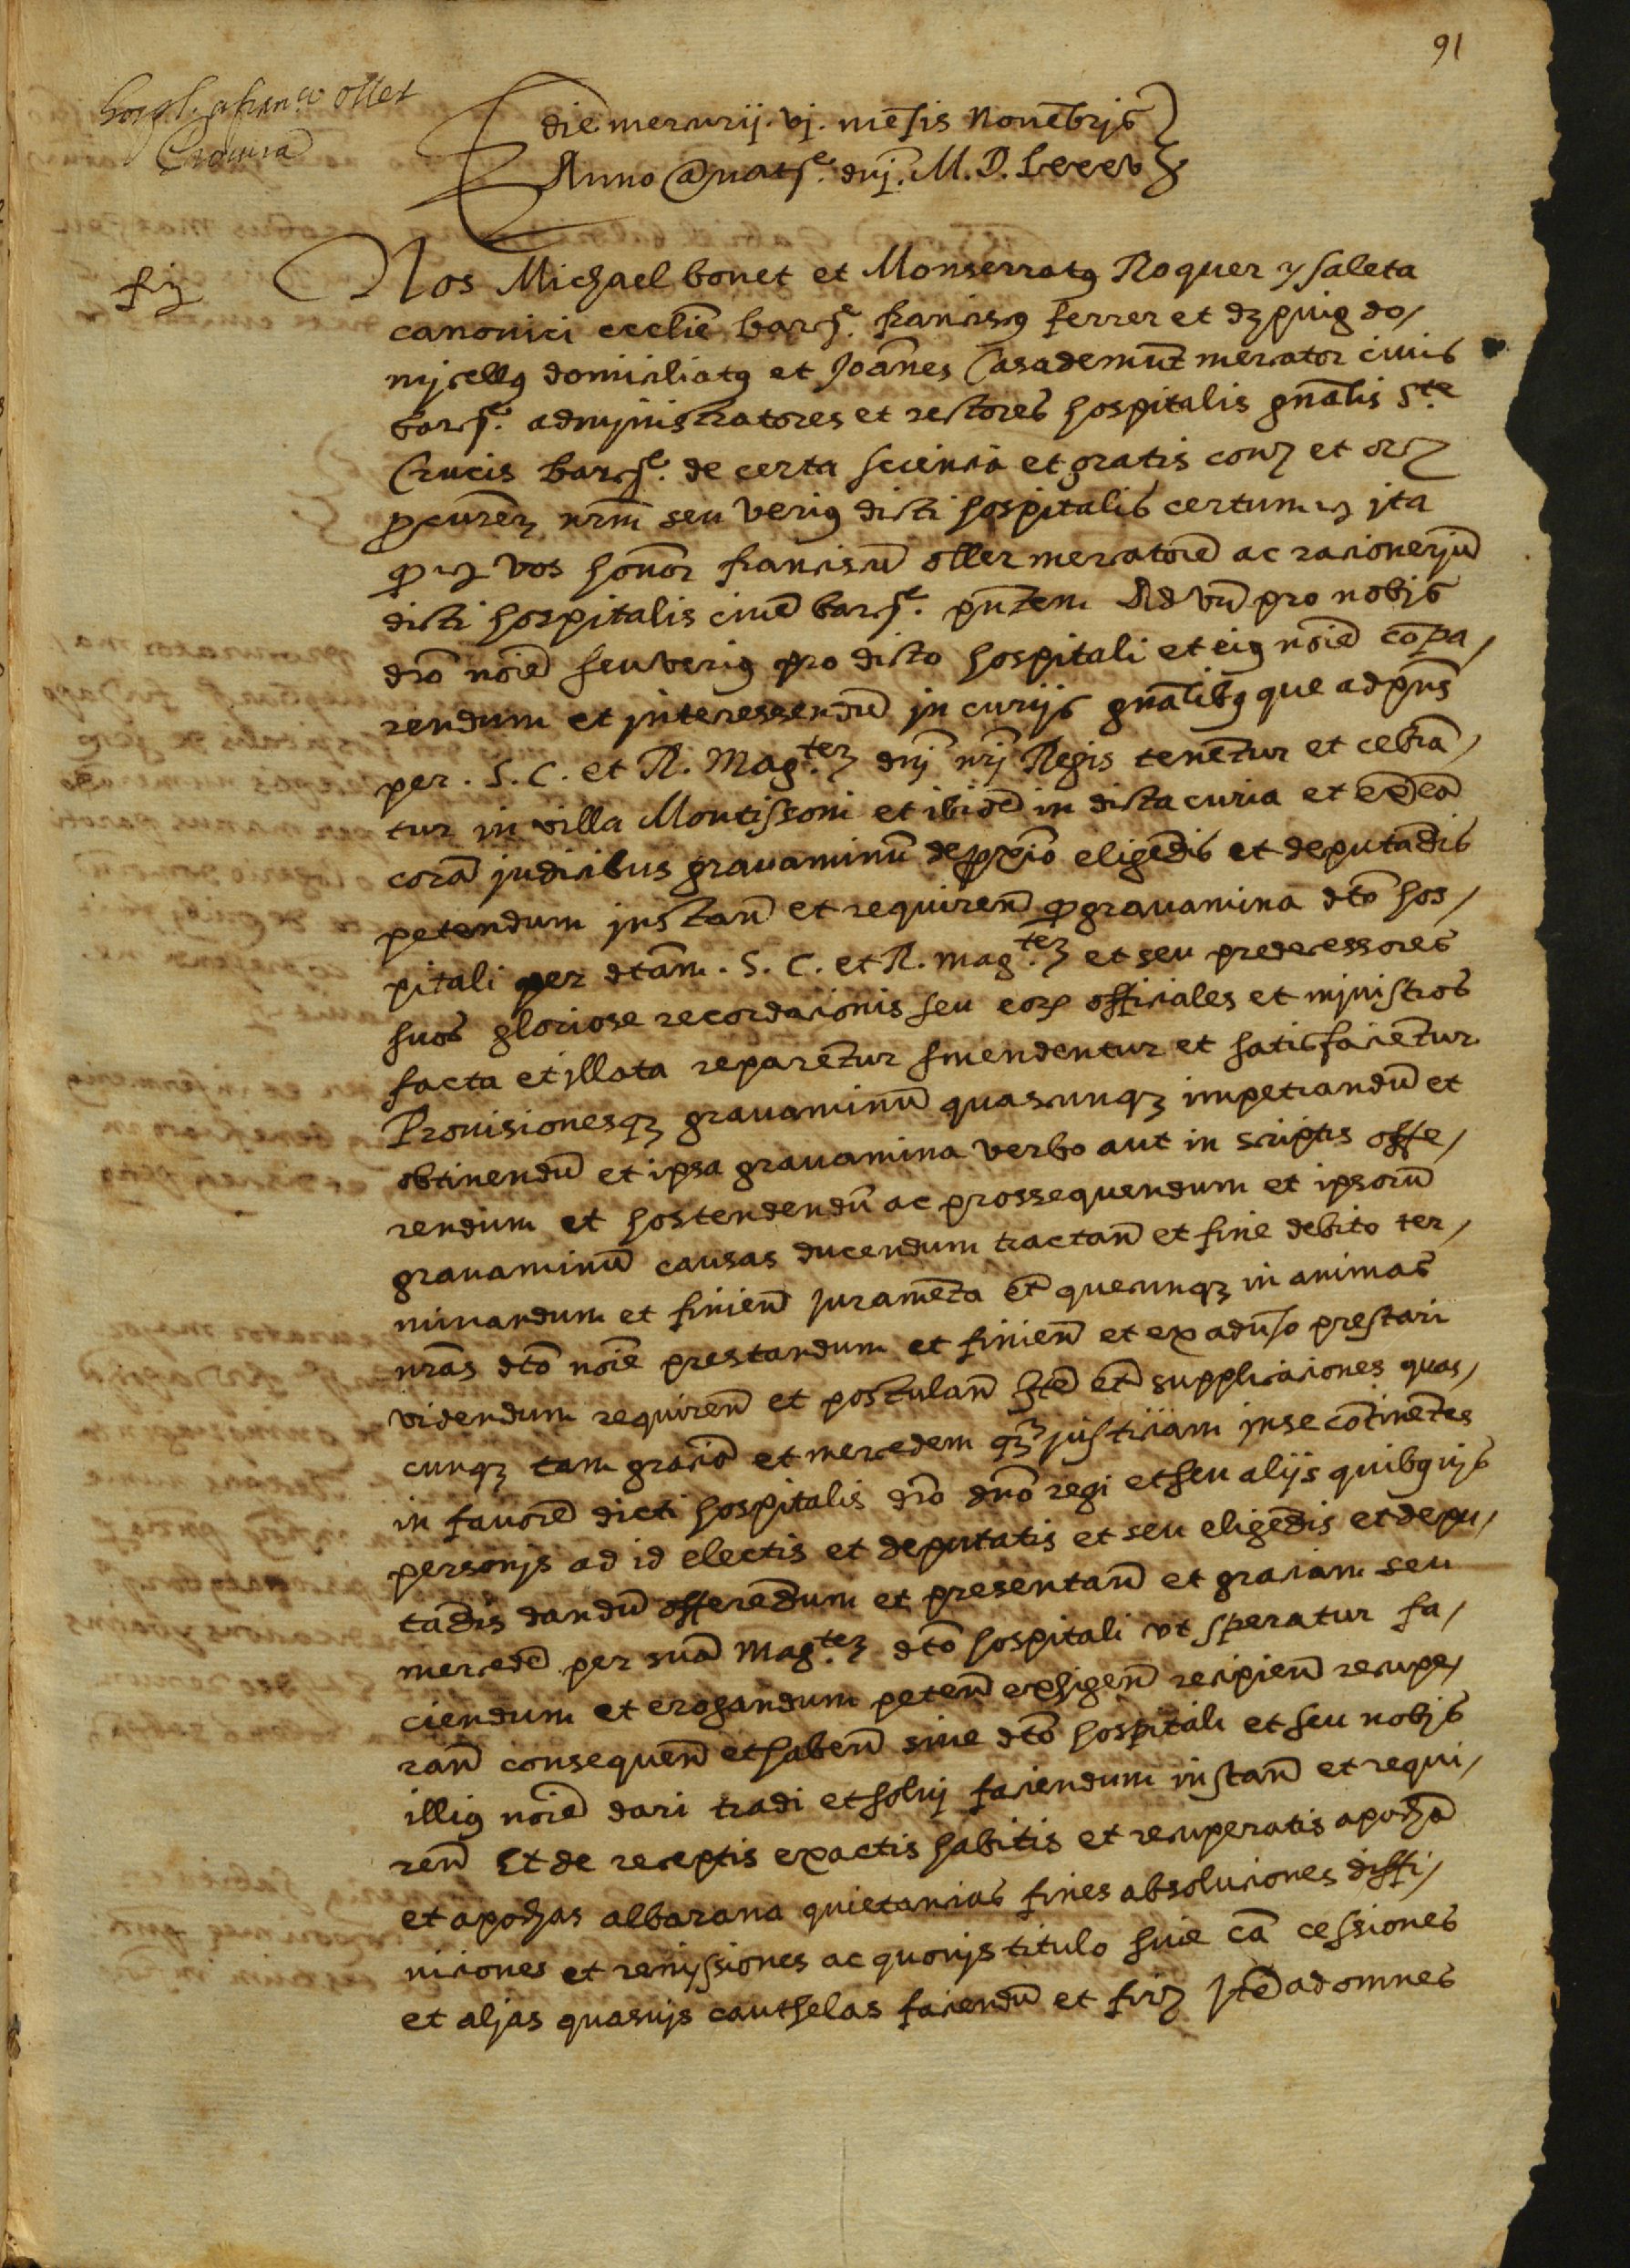 91
oller
die mercurij. vj. mēsis Nouēbris
Anno a natᵉ. dnj̄. M. D. Lxxxv
fiȝ
Nos Michael bonet et Monserratꝯ Roquer y saleta
canonici ecclīe barᵉ. franciscꝯ ferrer et dȝpuig do/
mjcellꝯ domiciliatꝯ et Joānes Casademūt mercator ciuis
barᵉ. admjnistratores et rectores hospitalis gnālis Sᵗᵉ
Crucis barᵉ. de certa sciencia et gratis conȝ et orȝ
ꝓcurēȝ nr̄m seu veriꝯ dicti hospitalis certum ita
ꝙ vos honor̄ franciscū oller mercatorē ac racionerjū
dicti hospitalis ciuē barᵉ. pn̄tem Ad vn̄ pro nobis
dc̄o noīe seu veriꝯ pro dicto hospitali et eiꝯ noīe cōpa/
rendum et jnteressendū jn curijs gnālibꝯ que ad pn̄s
per. S. C. et R. Magᵗᵉᵐ dnj̄ nrj̄ Regis tenētur et celbrā/
tur in villa Montissoni et ibidē in dicta curia et
corā judicibus grauaminū de ꝓxīo eligēdis et deputādis
petendum jnstan̄ et requiren̄ ꝙ grauamina dtō hos/
pitali per dtām. S. C. et R. magᵗᵉᵐ et seu predecessores
suos gloriose recordacionis seu eoꝝ officiales et mjnistros
facta et jllata reparētur smendentur et satisfaciētur
Prouisionesqȝ grauaminū quascunqȝ impetrandū et
obtinendū et ipsa grauamina verbo aut in scriptis offe/
rendum et hostendendū ac prossequendum et ipsorū
grauaminū causas ducendum tractan̄ et fine debito ter/
minandum et finien̄ Juramēta et̄ quecunqȝ in animas
nr̄as dtō noīe prestandum et finien̄ et ex aduso prestari
videndum requiren̄ et postulan̄ Itē et̄ supplicaciones quas/
cunqȝ tam graciā et mercedem qȝ justiciam jn se cōtinētes
in fauorē dicti hospitalis dc̄o dn̄o regi et seu alijs quibꝯvis
personjs ad id electis et deputatis et seu eligēdis et depu/
tādis dandū offerēdum et presentan̄ et graciam seu
mercedē per suā Magᵗᵉᵐ dtō hospitali vt speratur fa/
ciendum et erogandum peten̄ exhigen̄ recipien̄ recupe/
ran̄ consequen̄ et haben̄ siue dtō hospitali et seu nobis
illiꝯ noīe dari tradi et solvj faciendum instan̄ et requi/
ren̄ Et de receptis exactis habitis et recuperatis apochā
et apochas albarana quietancias fines absoluciones diffi/
niciones et remjssiones ac quovjs titulo siue cā cessiones
et aljas quasvjs cauthelas faciendū et firȝ Jtē ad omnes